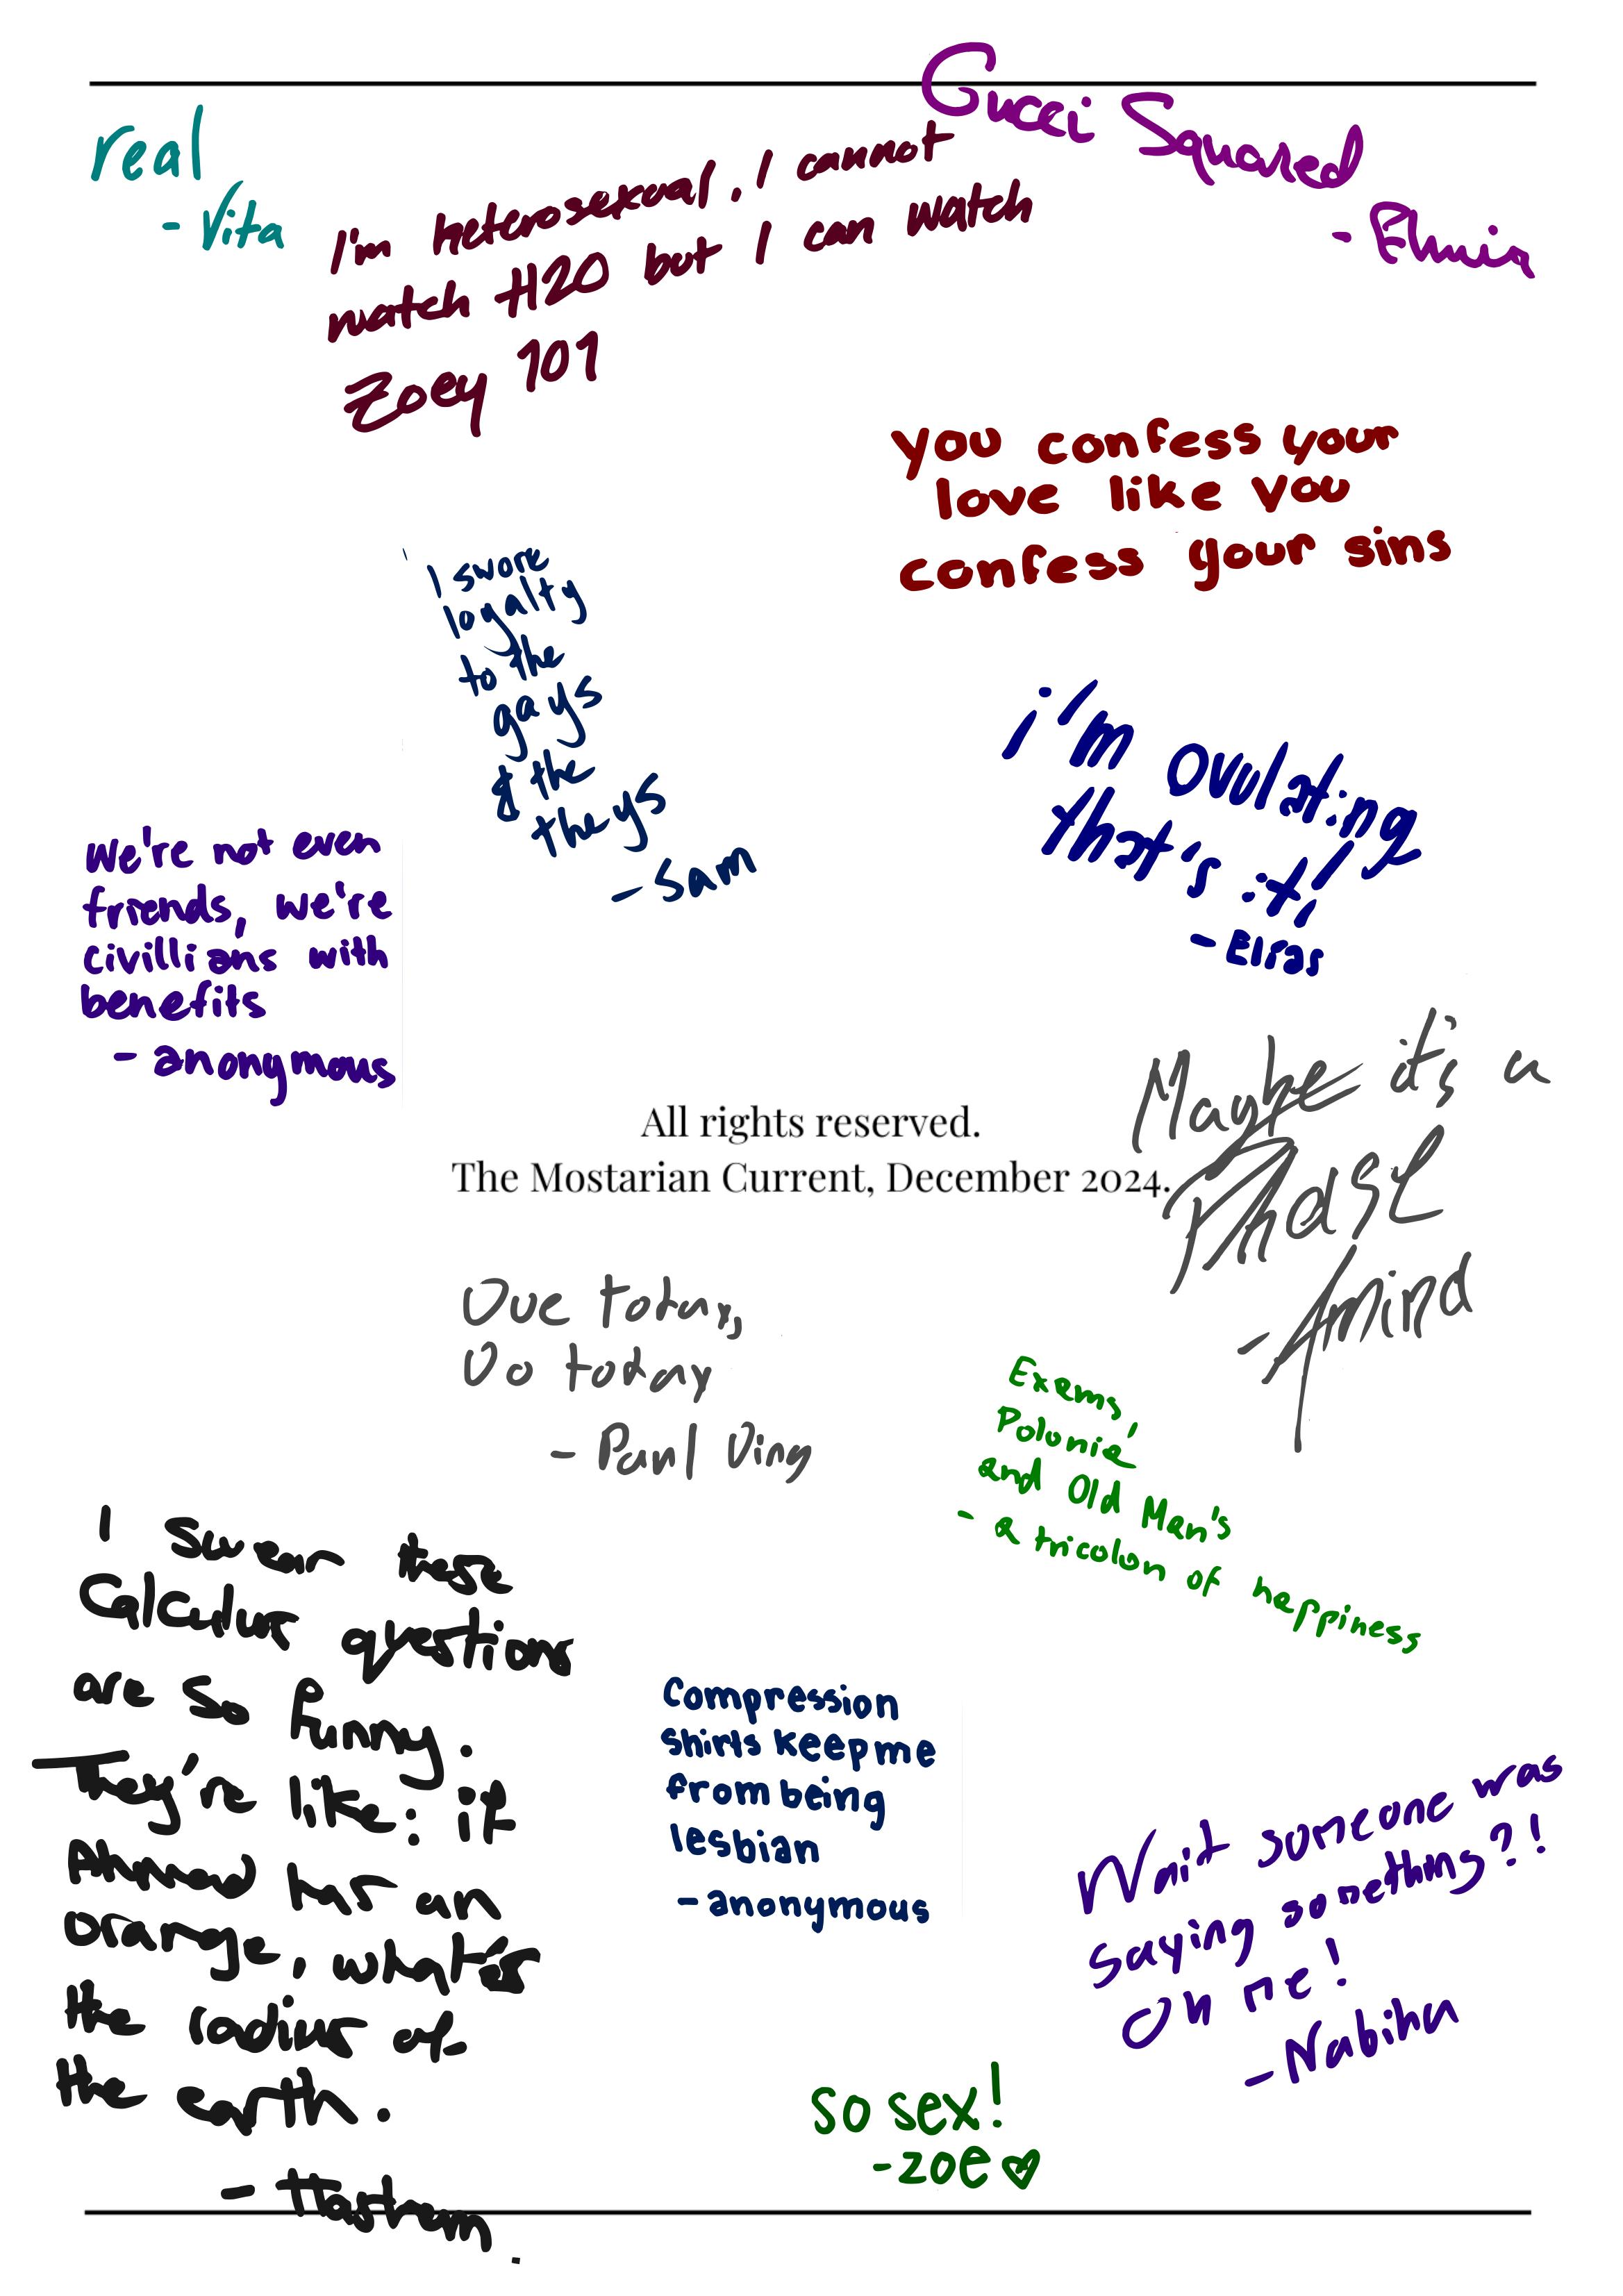 Gucci Squared
- Elmin
real
- Vita
I'm heterosexual. I cannot
watch H2O but I can watch
Zoey 101
you confess your
love like you
confess your sins
I swore
loyalty
to the
gays
& the
theys
- Sam
i'm ovulating
that's it!
- Elias
we're not even
friends, we're
civillians with
benefits
- anonymous
Maybe it's a
Phase
- Amind
All rights reserved.
The Mostarian Current, December 2024.
Due today,
Do today
- Paul Ding
Exams,
Polonia
and Old Man's
- a tricolon of happiness
I swear these
Calculus questions
are so funny.
They're like: if
Ahmad has an
orange, what's
the radius of
the earth.
- Hashem.
Compression
shirts keep me
from being
lesbian
- anonymous
Wait someone was
saying something?!
Oh me!
- Nabiha
so sex!
- zoe